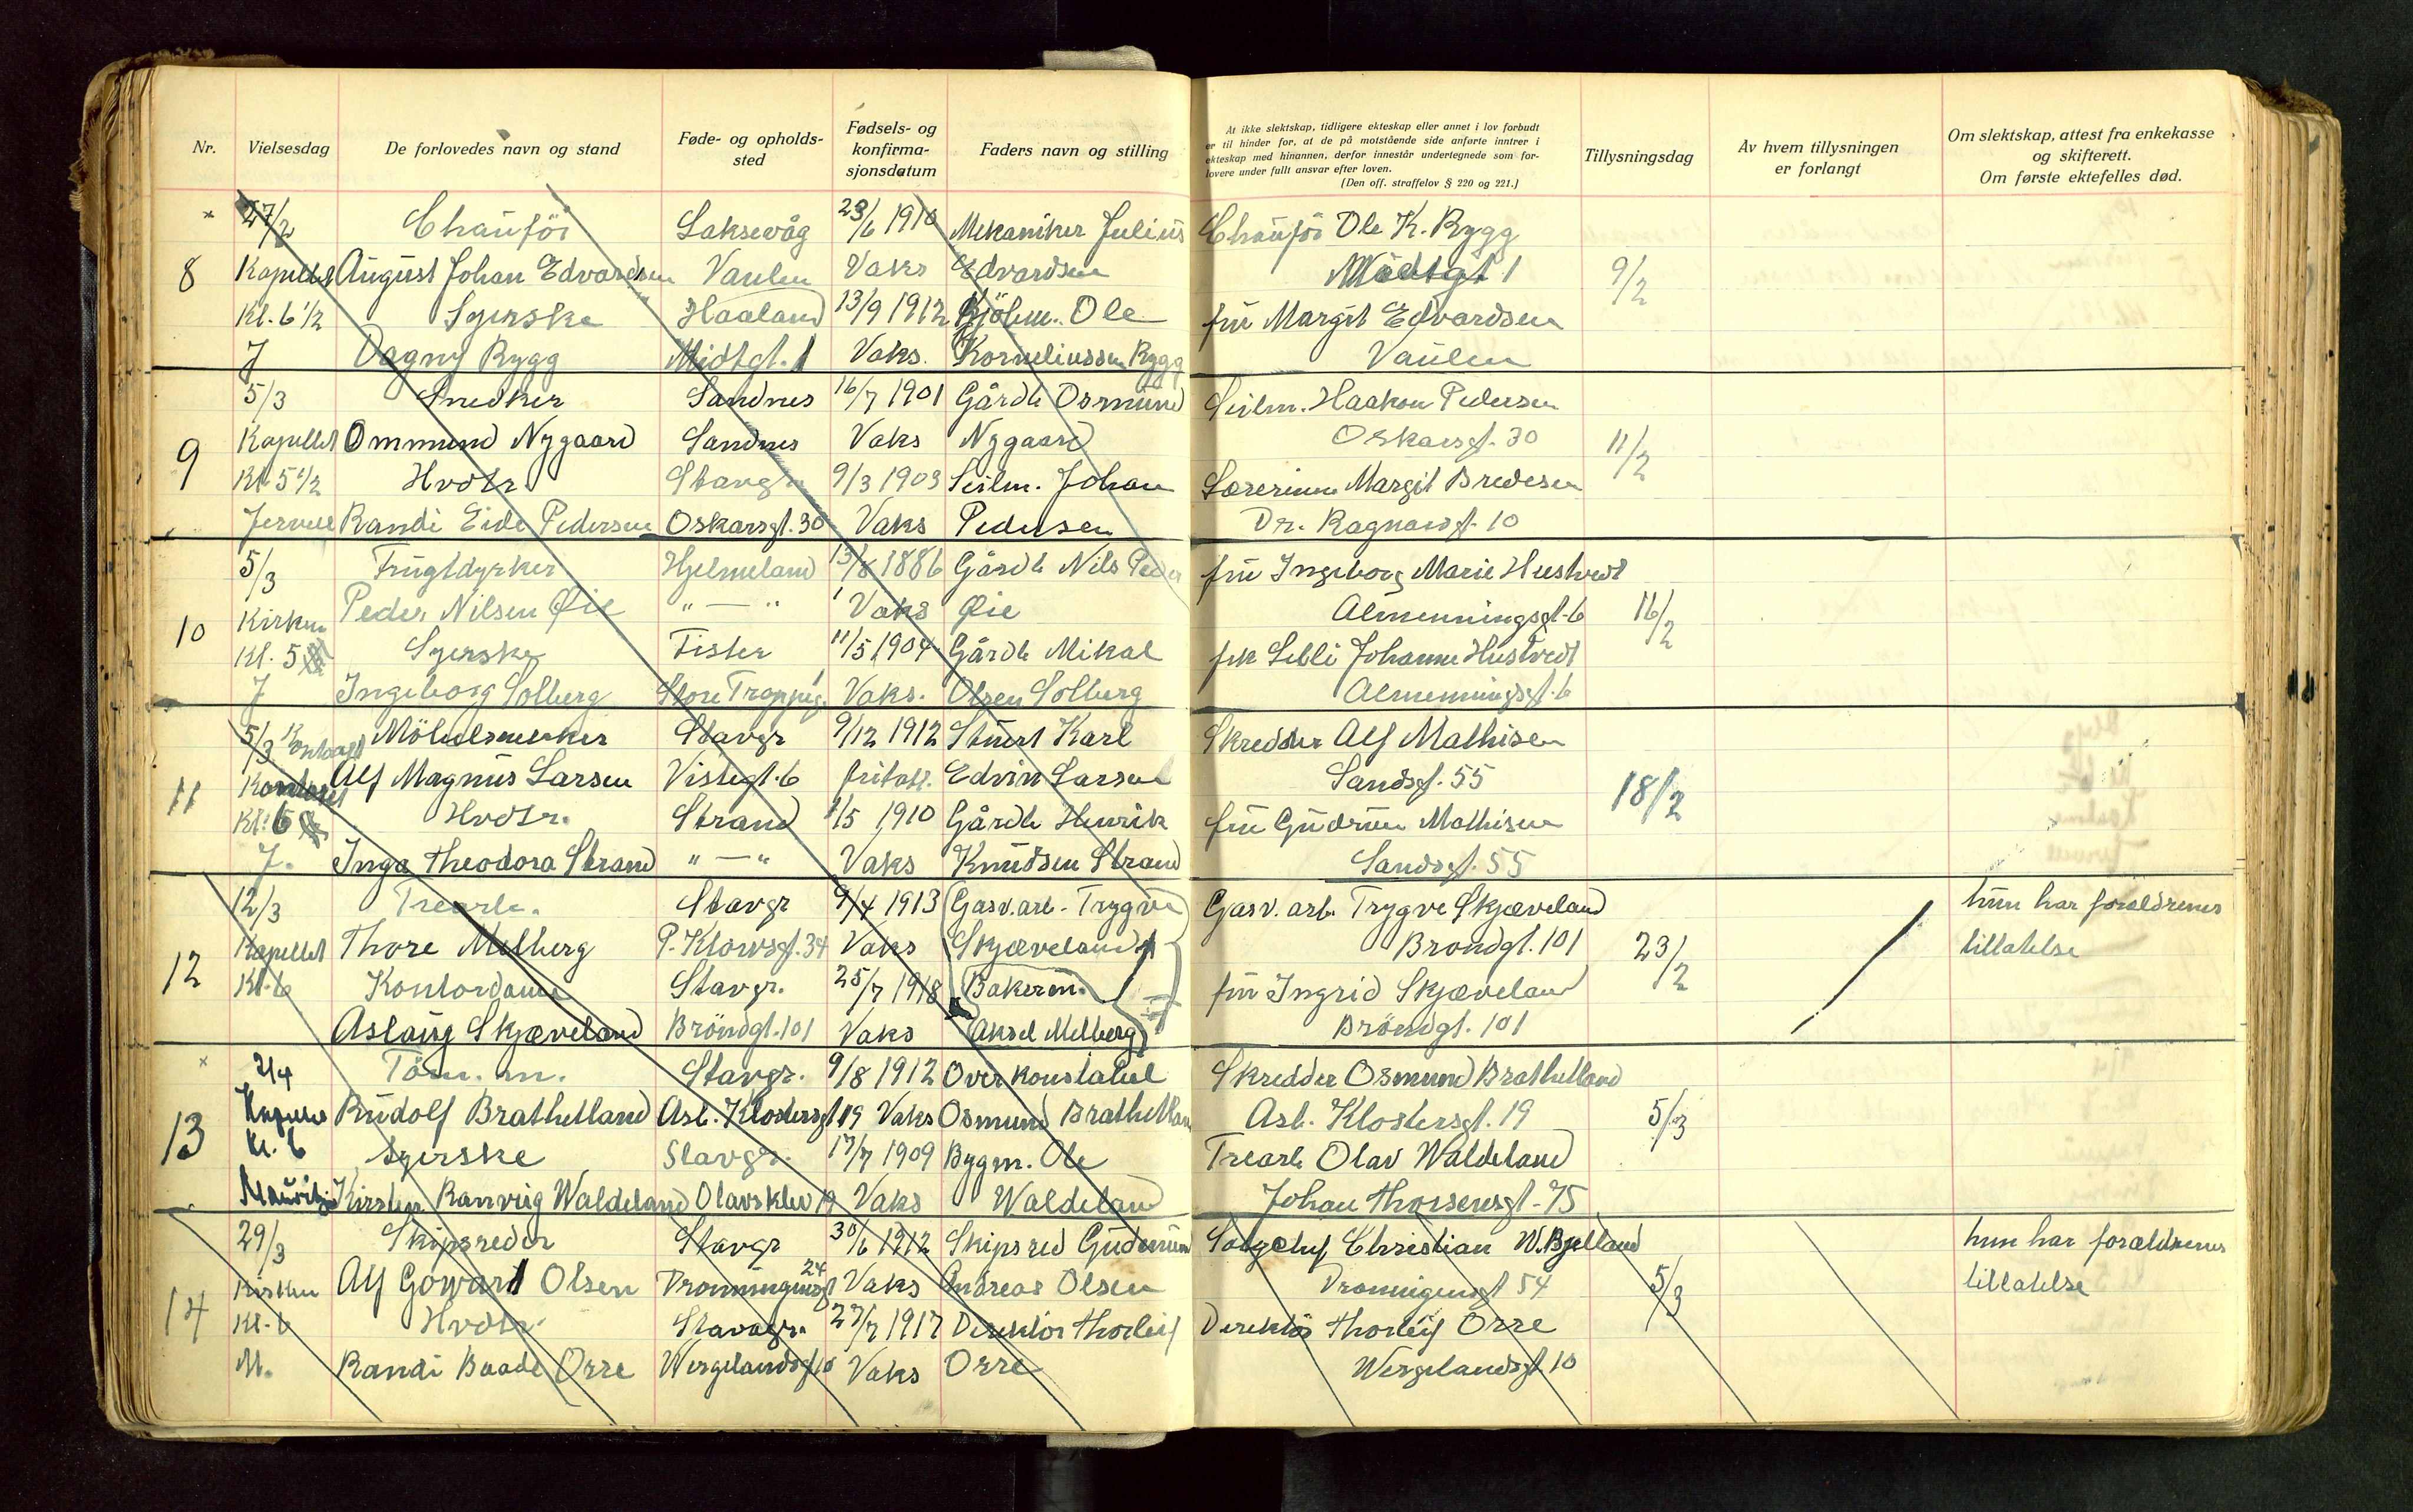 Nr.
Vielsesdag
De forlovedes navn og stand
Føde- og opholds-
sted
Fødsels- og
konfirma-
sjonsdatum
Faders navn og stilling
At ikke slektskap, tidligere ekteskap eller annet i lov forbudt
er til hinder for, at de på motstående side anførte inntrer i
ekteskap med hinannen, derfor innestår undertegnede som for-
lovere under fullt ansvar efter loven.
(Den off. straffelov § 220 og 221.)
Tillysningsdag
Av hvem tillysningen
er forlangt
Om slektskap, attest fra enkekasse
og skifterett.
Om første ektefelles død.
27/2 Chauför Laksevåg 23/6 1910 Mekaniker Julius Chauför Ole K. Rygg
8 Kapellet August Johan Edvardsen Vaulen Vaks Edvardsen Midtgt 1 9/2
Kl. 6 1/2 Syerske Haaland 13/9 1912 Ole fru Margit Edvardsen
J Dagny Rygg Midtgt. 1 Vaks. Korneliussen Rygg Vaulen
5/3 Snedker Sandnes 16/7 1901 Gårdb Osmund Seilm. Haakon Pedersen
9 Kapellet Ommund Nygaard Sandnes Vaks Nygaard Oskarsgt. 30 11/2
Kl. 5 1/2 Hvdtr. Stavgr 9/3 1903 Seilm. Johan Lærerinne Margit Bredesen
Randi Eide Pedersen Oskarsgt. 30 Vaks Pedersen Dr. Ragnasgt. 10
5/3 Frugtdyrker Hjelmeland 13/8 1886 Gårdb Nils Peder fru Ingeborg Marie Hustvedt
10 Kirken Peder Nilsen Øie " — " Vaks Øie Almenningsgt. 6 16/2
Kl. 5 Syerske Fister 11/5 1904 Gårdb Mikal frk Lelli Johanne Hustvedt
J Ingeborg Solberg Vaks. Olsen Solberg Almenningsgt. 6
5/3 Möbelsnekker Stavgr 9/12 1912 Stuert Karl Skredder Alf Mathisen
11 Kontoret Alf Magnus Larsen Vistegt. 6 Edvin Larsen Sandsgt. 55 18/2
Kl. 6 Hvdtr. Strand 1/5 1910 Gårdb Henrik fru Gudrun Mathisen
J. Inga Theodora Strand " — " Vaks Knudsen Strand Sandsgt. 55
12/3 Trearb. Stavgr 9/4 1913 Gasv. arb. Trygve Gasv. arb. Trygve Skjæveland hun har forældrenes
12 Kapellet Thore Melberg P. Klowsgt. 34 Vaks Skjæveland Brondgt. 101 23/2 tillatelse
Kl. 6 Kontordame Stavgr. 25/7 1918 Bakerm. fru Ingrid Skjæveland
Aslaug Skjæveland Bröndgt. 101 Vaks Aksel Melberg Bröndgt. 101
2/4 Töm. m. Stavgr. 9/8 1912 Overkonstabel Skredder Osmund Brathetland
13 Kapellet Rudolf Brathetland Asb. Klostersgt 19 Vaks Osmund Brathetland Asb. Klostersgt. 19 5/3
Kl. 6 Syerske Stavgr. 17/7 1909 Bygm. Ole Trearb Olav Waldeland
Kirsten Ranveig Waldeland Olavsklev 19 Vaks Waldeland Johan Thorsensgt. 75
29/3 Skipsreder Stavgr 30/6 1912 Skipsred Gudmund Christian W. Bjelland hun har forældrenes
14 Kirken Alf Gowart Olsen Dronningensgt 24 Vaks Andreas Olsen Dronnigensgt 54 5/3 tillatelse
Kl. 6 Hvdtr. Stavgr. 27/7 1917 Direktör Thorleif Direktör Thorleif Orre
M. Randi Baade Orre Wergelandsgt 10 Vaks Orre Wergelandsgt 10